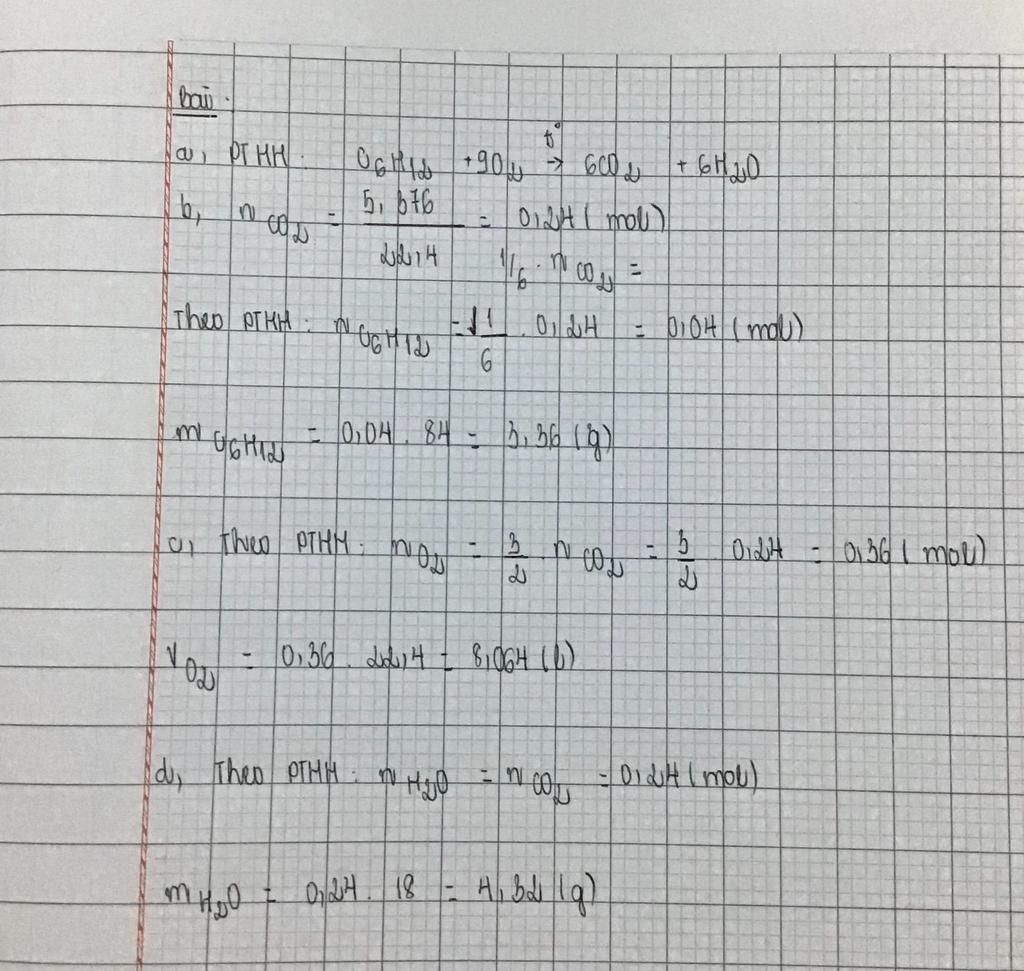 Bài:
a, PTHH: C6H12 + 9O2 t°→ 6CO2 + 6H2O
b, nCO2 = 5,376 / 22,4 = 0,24 (mol)
1/6 . nCO2 =
Theo PTHH: nC6H12 = 1/6 . 0,24 = 0,04 (mol)
mC6H12 = 0,04 . 84 = 3,36 (g)
c, Theo PTHH: nO2 = 3/2 . nCO2 = 3/2 0,24 = 0,36 (mol)
VO2 = 0,36 . 22,4 = 8,064 (l)
d, Theo PTHH: nH2O = nCO2 = 0,24 (mol)
mH2O = 0,24 . 18 = 4,32 (g)